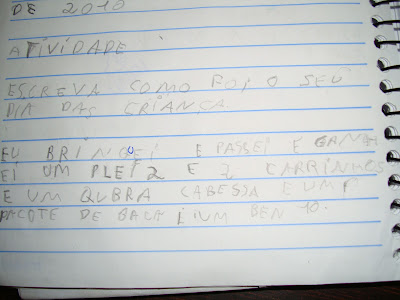 DE 2010
ATIVIDADE
ESCREVA COMO FOI O SEU
DIA DAS CRIANÇA
EU BRINQUEI E PASSEI E GANHA
EI UM PLEI 2 E 2 CARRINHOS
E UM QUBRA CABESSA E UM
PACOTE DE BALA E IUM BEN 10.